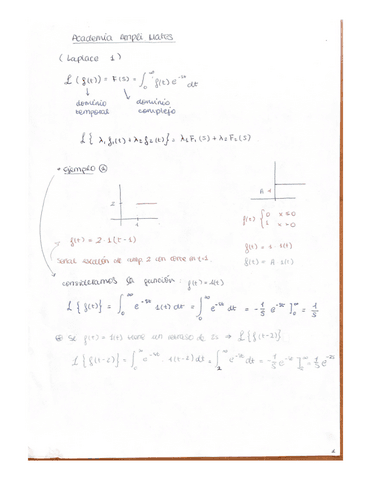 Academia Ampli Mates
(Laplace 1)
L (f(t)) = F(s) = ∫₀^∞ f(t) e^-st dt
dominio temporal
dominio complejo
L{ λ₁ f₁(t) + λ₂ f₂(t)} = λ₁ F₁(s) + λ₂ F₂(s)
Ejemplo
2
1
A
f(t) { 0 x ≤ 0
1 x > 0
f(t) = 2 · 1(t-1)
f(t) = 1 · 1(t)
f(t) = A · 1(t)
consideramos la función: f(t) = 1(t)
L{f(t)} = ∫₀^∞ e^-st 1(t) dt = ∫₀^∞ e^-st dt = -1/s e^-st ]₀^∞ = 1/s
Si f(t) = 1(t) tiene un retraso de 2s ⇒ L{f(t-2)}
L{f(t-2)} = ∫₀^∞ e^-st · 1(t-2) dt = ∫₂^∞ e^-st dt = -1/s e^-st ]₂^∞ = 1/s e^-2s